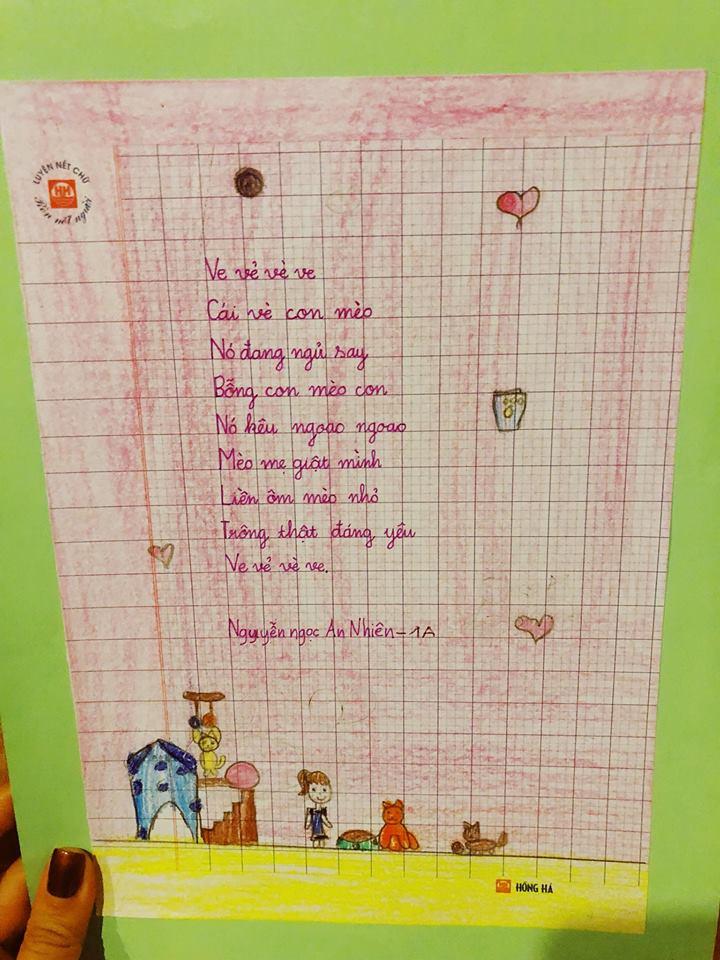 LUYỆN NÉT CHỮ
HH
Rèn nết người
Ve vẻ vè ve
Cái vè con mèo
Nó đang ngủ say
Bỗng con mèo con
Nó kêu ngoao ngoao
Mèo mẹ giật mình
Liền ôm mèo nhỏ
Trông thật đáng yêu
Ve vẻ vè ve.
Nguyễn ngọc An Nhiên - 1A
HỒNG HÀ